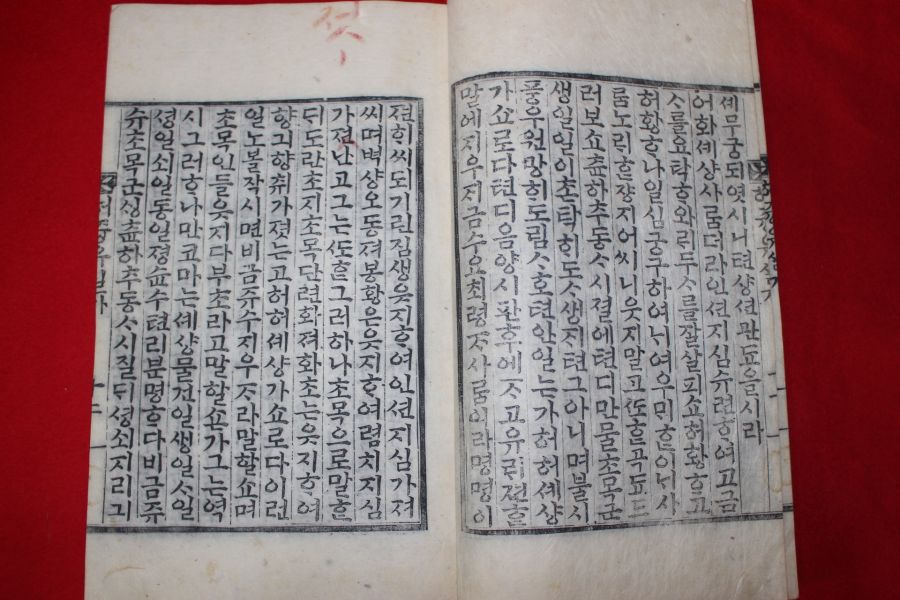 셰무궁되엿시니텬샹션판도을시라
어화셰샹사ᄅᆞᆷ더라인션지심슈련ᄒᆞ여고금
ᄉᆞ를요탁ᄒᆞ와ᄅᆡ두ᄉᆞ를잘살피쇼허황ᄒᆞ고
허황ᄒᆞ나일심궁구하여ᄂᆡ여으ᄆᆡᄒᆞᆫ이ᄂᆡ사
ᄅᆞᆷ노ᄅᆡᄒᆞᆫ쟝지어씨니웃지말고ᄯᅩᄒᆞᆫ곡됴드
러보쇼츈하추동ᄉᆞ시졀에텬디만물초목군
생일일이촌탁ᄒᆡ도ᄉᆞ생지텬그아니며불시
풍우원망ᄒᆡ도림ᄉᆞ호텬안일는가허셰샹
가쇼로다텬디음양시판후에ᄌᆞ고유ᄅᆡ젼ᄒᆞᆫ
말에지우지금수요최령ᄌᆞ사ᄅᆞᆷ이라명명이
젼ᄒᆡ씨되기린짐생읏지ᄒᆞ여인션지심가져
씨며벽샹오동져봉황은읏지ᄒᆞ여렴치지심
가졋난고그는ᄯᅩᄒᆞᆫ그러하나초목으로말ᄒᆞᆫ
ᄃᆡ도란초지초목단련화져화초는읏지ᄒᆞ여
향긔향츄가졋는고허허셰샹가쇼로다이런
일노볼작시면비금쥬수지우ᄌᆞ라말할쇼며
초목인들읏지다부초라고말할쇼가그는역
시그러ᄒᆞ나만코마는셰샹물건일생일ᄉᆞ일
셩일쇠일동일졍슌수텬리분명ᄒᆞ다비금쥬
슈초목군셩츈하추동ᄉᆞ시졀ᄃᆡ셩쇠지리긔